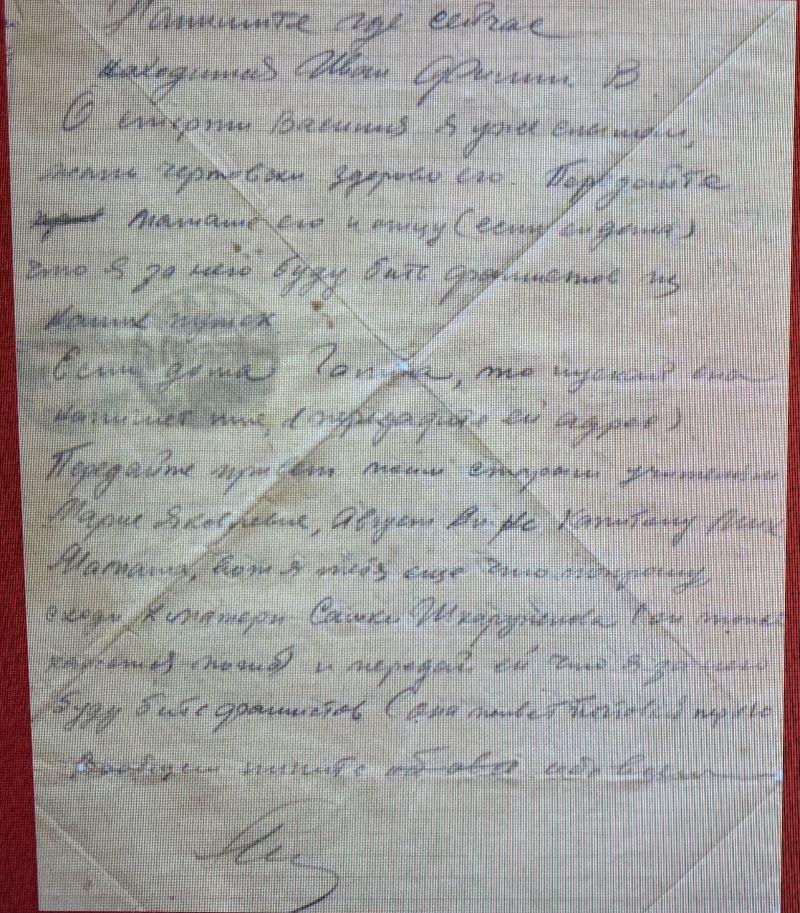 Напишите где сейчас
находится Иван Филип. В.
О смерти Василия я уже слышал,
жаль чертовски здорово его. Передайте
мамаше его и отцу (если он дома)
что я за него буду бить фашистов из
наших пушек
Если дома Галина, то пускай она
напишет мне, (передадите ей адрес)
Передайте привет моим старым учителям
Марие Яковлевне, Август
Мамаша, вот я тебя еще что попрошу
сходи к матери Сашки Шкарупелова (он тоже
кажется погиб) и передай ей что я за него
буду бить фашистов (она живет
Вообщем пишите обо всем